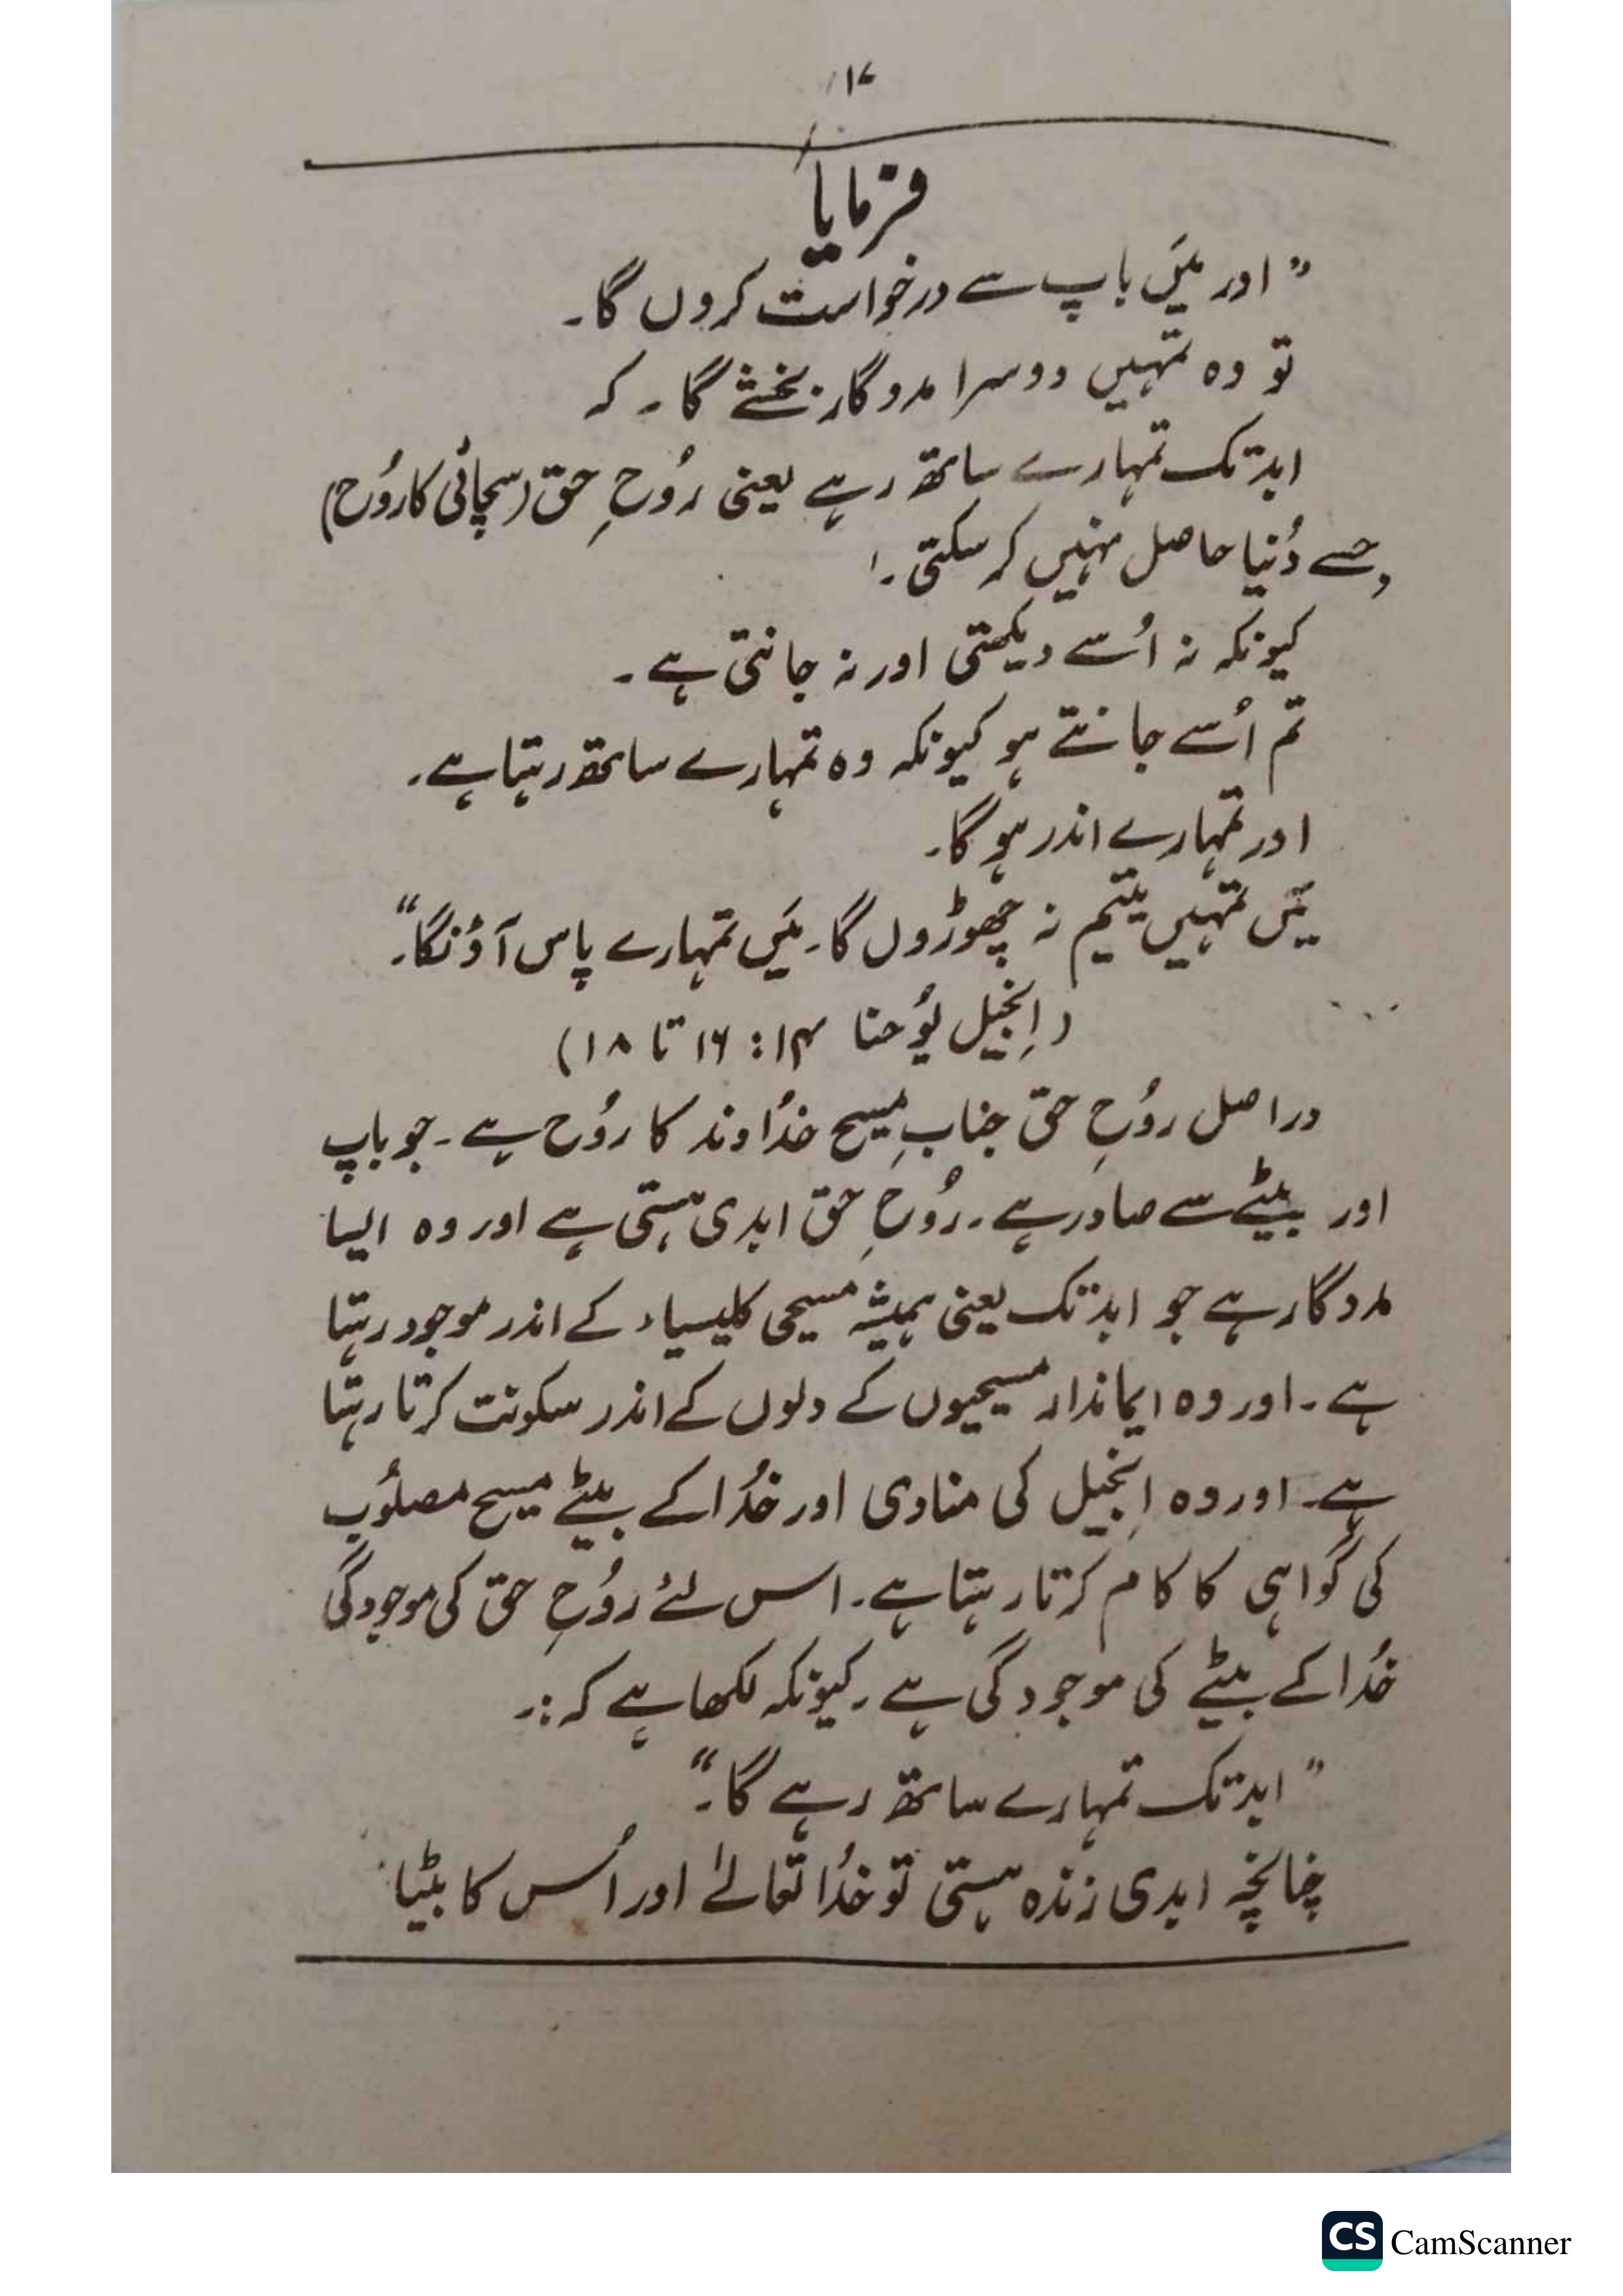 ۱۷
فرمایا
"اور میَں باپ سے درخواست کروں گا۔
تو وہ تمہیں دوسرا مددگار بخشے گا۔ کہ
ابد تک تمہارے ساتھ رہے یعنی رُوحِ حق (سچائی کا رُوح)
جِسے دُنیا حاصل نہیں کر سکتی۔
کیونکہ نہ اُسے دیکھتی اور نہ جانتی ہے۔
تم اُسے جانتے ہو کیونکہ وہ تمہارے ساتھ رہتا ہے۔
اور تمہارے اندر ہو گا۔
میَں تمہیں یتیم نہ چھوڑوں گا۔ میَں تمہارے پاس آؤنگا۔"
(اِنجیل یُوحنا ۱۴: ۱۶ تا ۱۸)
دراصل روُحِ حق جنابِ مسیح خُداوند کا روُح ہے۔ جو باپ
اور بیٹے سے صادر ہے۔ رُوحِ حق ابدی ہستی ہے اور وہ ایسا
مددگار ہے جو ابد تک یعنی ہمیشہ مسیحی کلیسیاء کے اندر موجود رہتا
ہے۔ اور وہ ایماندار مسیحیوں کے دلوں کے اندر سکونت کرتا رہتا
ہے۔ اور وہ اِنجیل کی منادی اور خُدا کے بیٹے مسیح مصلُوب
کی گواہی کا کام کرتا رہتا ہے۔ اس لئے روُحِ حق کی موجودگی
خُدا کے بیٹے کی موجودگی ہے۔ کیونکہ لکھا ہے کہ :۔
"ابد تک تمہارے ساتھ رہے گا۔"
چنانچہ ابدی زندہ ہستی تو خُدا تعالےٰ اور اُس کا بیٹا
CS CamScanner